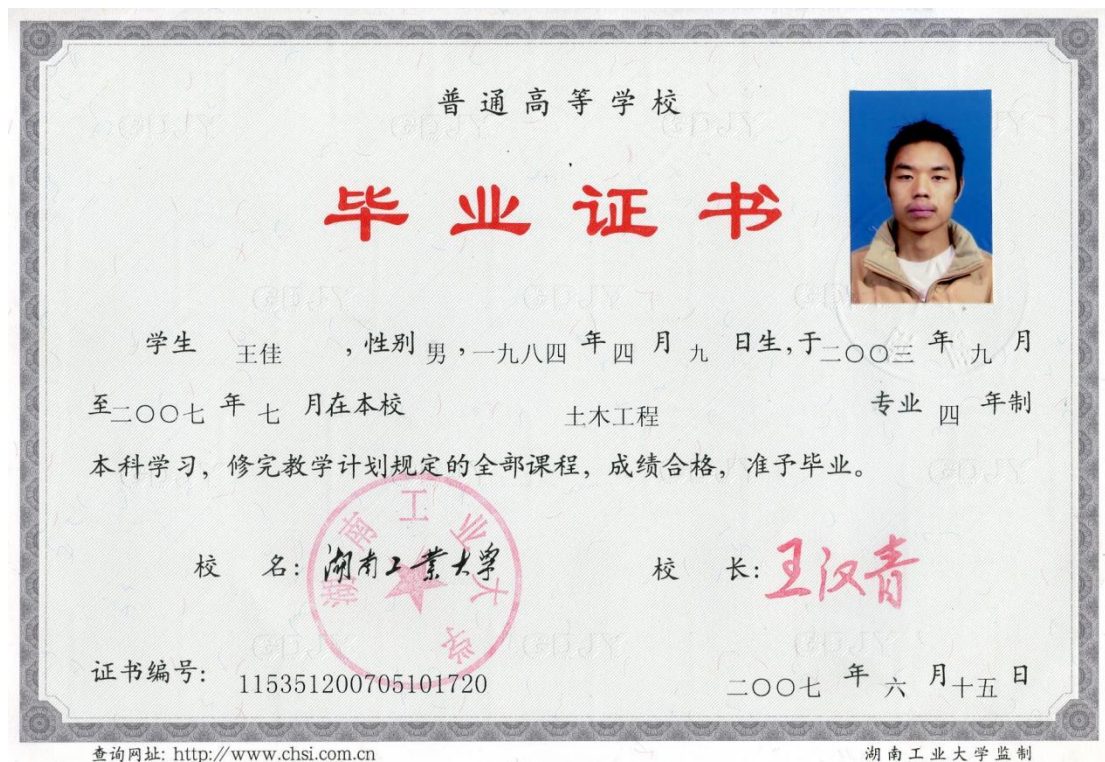 普通高等学校
毕业证书
学生 王佳 ，性别 男，一九八四 年 四 月 九 日生，于二〇〇三 年 九 月
至二〇〇七 年 七 月在本校 土木工程 专业 四 年制
本科学习，修完教学计划规定的全部课程，成绩合格，准予毕业。
湖南工业大学
校 名：湖南工業大学 校 长：王汉青
证书编号： 115351200705101720 二〇〇七 年 六 月十五 日
查询网址: http://www.chsi.com.cn 湖南工业大学监制